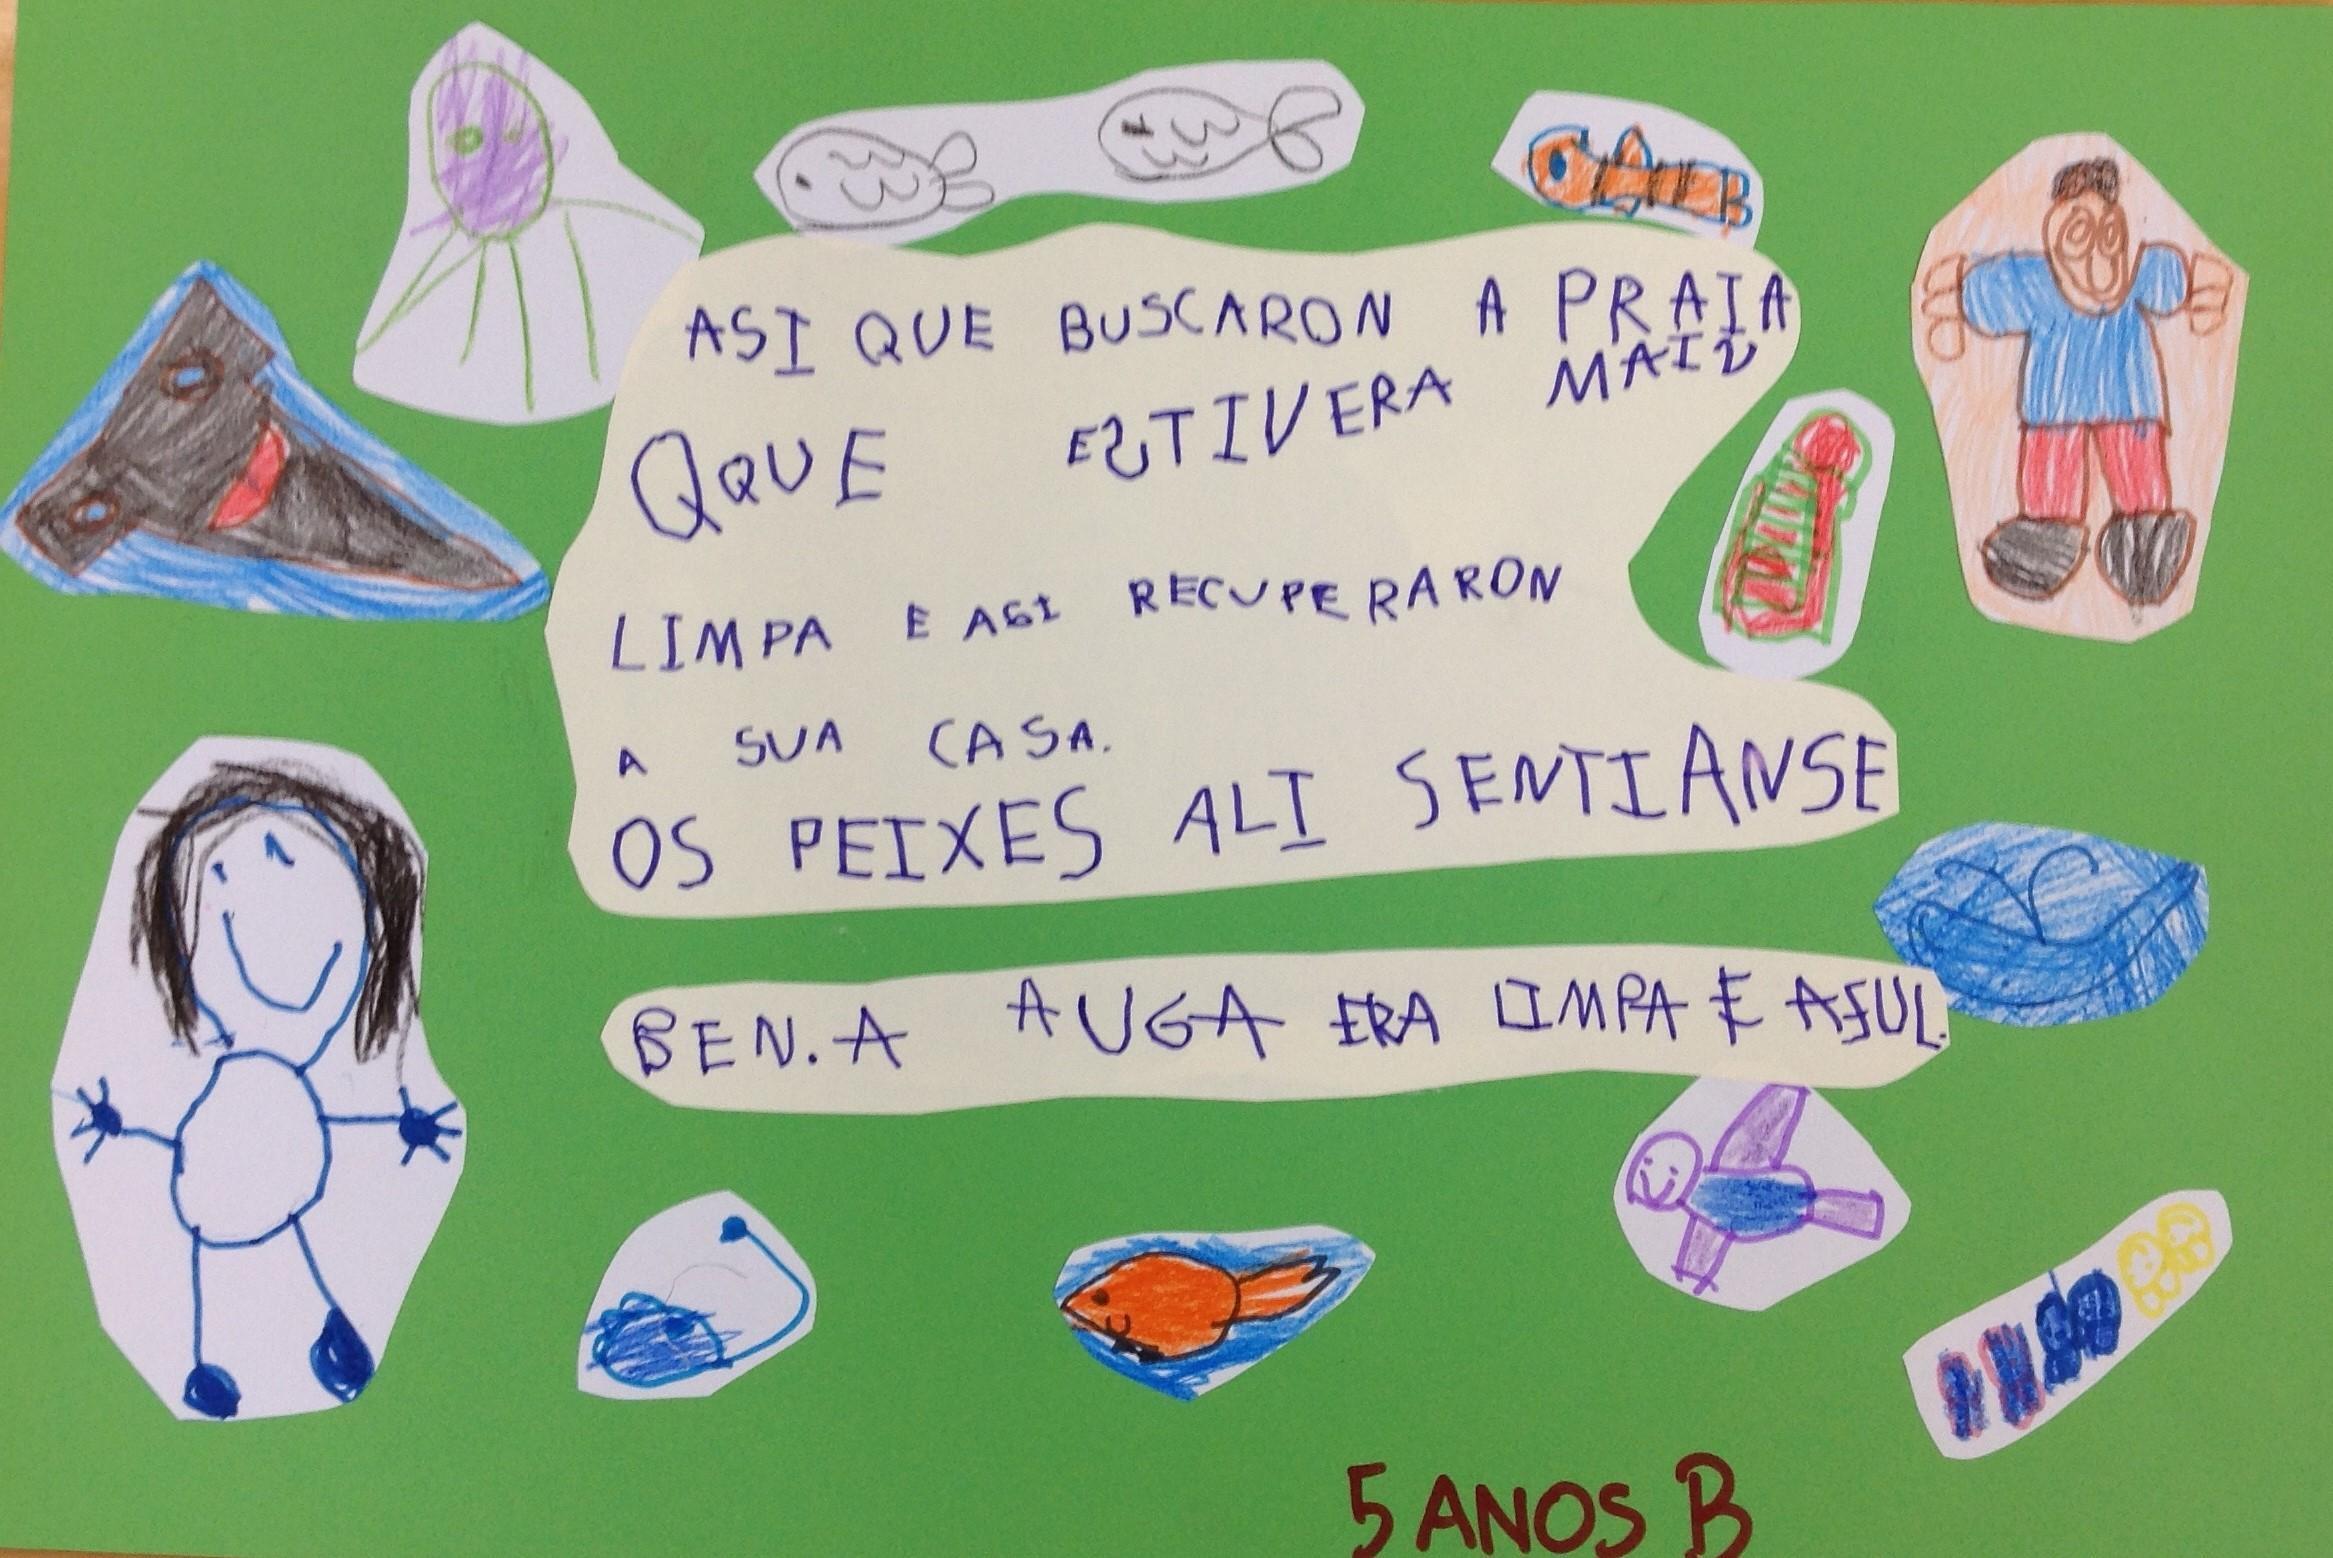 ASI QUE BUSCARON A PRAIA
QQUE ESTIVERA MAIS
LIMPA E ASI RECUPERARON
A SUA CASA.
OS PEIXES ALI SENTIANSE
BEN. A AUGA ERA LIMPA E ASUL.
5 ANOS B